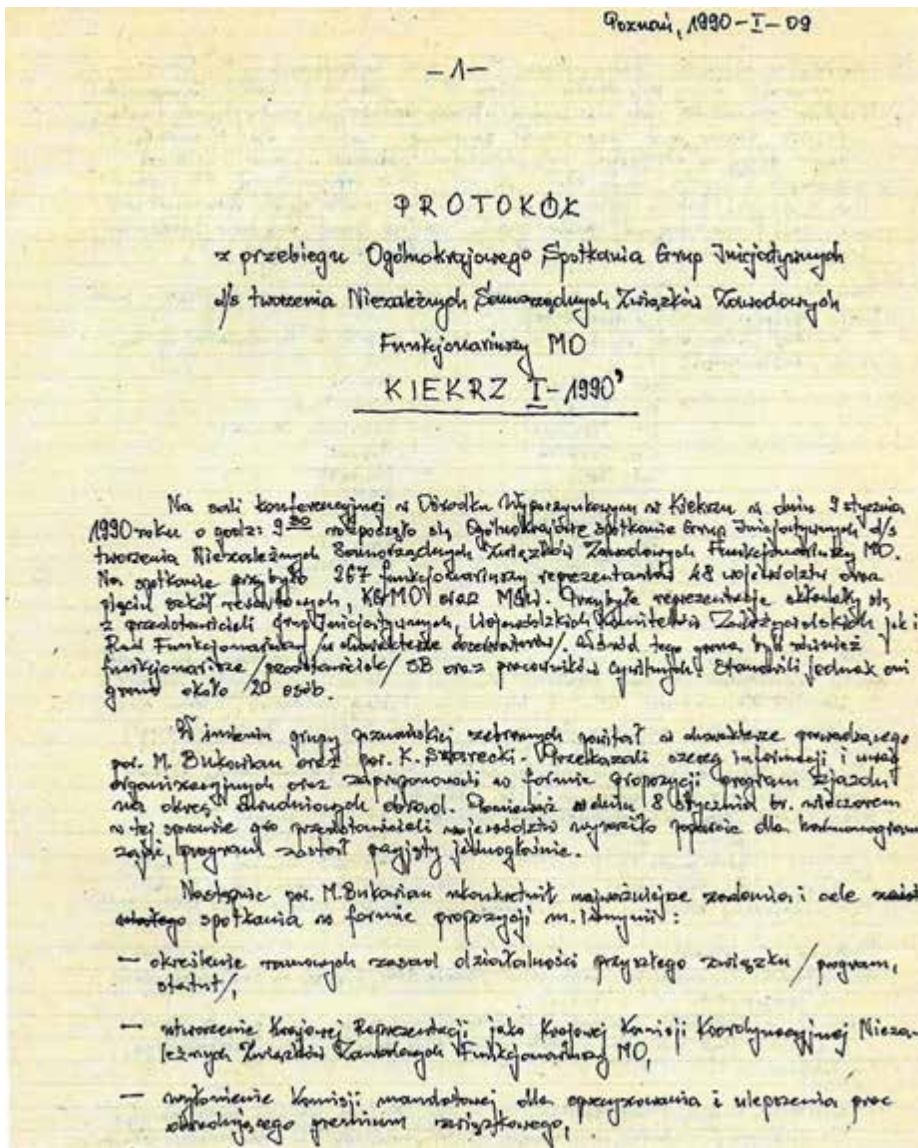 Poznań, 1990-I-09
-1-
PROTOKÓŁ
z przebiegu Ogólnokrajowego Spotkania Grup Inicjatywnych
d/s tworzenia Niezależnych Samorządnych Związków Zawodowych
Funkcjonariuszy MO
KIEKRZ I-1990'
Na sali konferencyjnej w Ośrodku Wypoczynkowym w Kiekrzu w dniu 9 stycznia
1990 roku o godz: 9 30 rozpoczęło się Ogólnokrajowe spotkanie Grup Inicjatywnych d/s
tworzenia Niezależnych Samorządnych Związków Zawodowych Funkcjonariuszy MO.
Na spotkanie przybyło 267 funkcjonariuszy reprezentantów 48 województw oraz
pięciu szkół resortowych, KGMO oraz MSW. Przybyłe reprezentacje składały się
z przedstawicieli grup inicjatywnych, Wojewódzkich Komitetów Założycielskich jak i
Rad Funkcjonariuszy /w charakterze obserwatorów/. Wśród tego grona byli również
funkcjonariusze /przedstawiciele/ SB oraz pracowników cywilnych. Stanowili jednak oni
grono około 20 osób.
W imieniu grupy poznańskiej zebranych powitał w charakterze prowadzącego
por. M. Bukowian oraz por. K. Szarecki. Przekazali szereg informacji i uwag
organizacyjnych oraz zaproponowali w formie propozycji program zjazdu
na okres obrad. Ponieważ w dniu 8 stycznia br. wieczorem
w tej sprawie gro przedstawicieli województw wyraziło poparcie dla harmonogramu
zajęć, program został przyjęty jednogłośnie.
Następnie por. M. Bukowian ukonkretnił najważniejsze zadania i cele
spotkania w formie propozycji m. innymi:
- określenie ramowych zasad działalności przyszłego związku /program,
statut/,
- utworzenie Krajowej Reprezentacji jako Krajowej Komisji Koordynacyjnej Nieza-
leżnych Związków Zawodowych Funkcjonariuszy MO,
- wyłonienie Komisji mandatowej dla i ulepszenia prac
obradującego gremium związkowego,